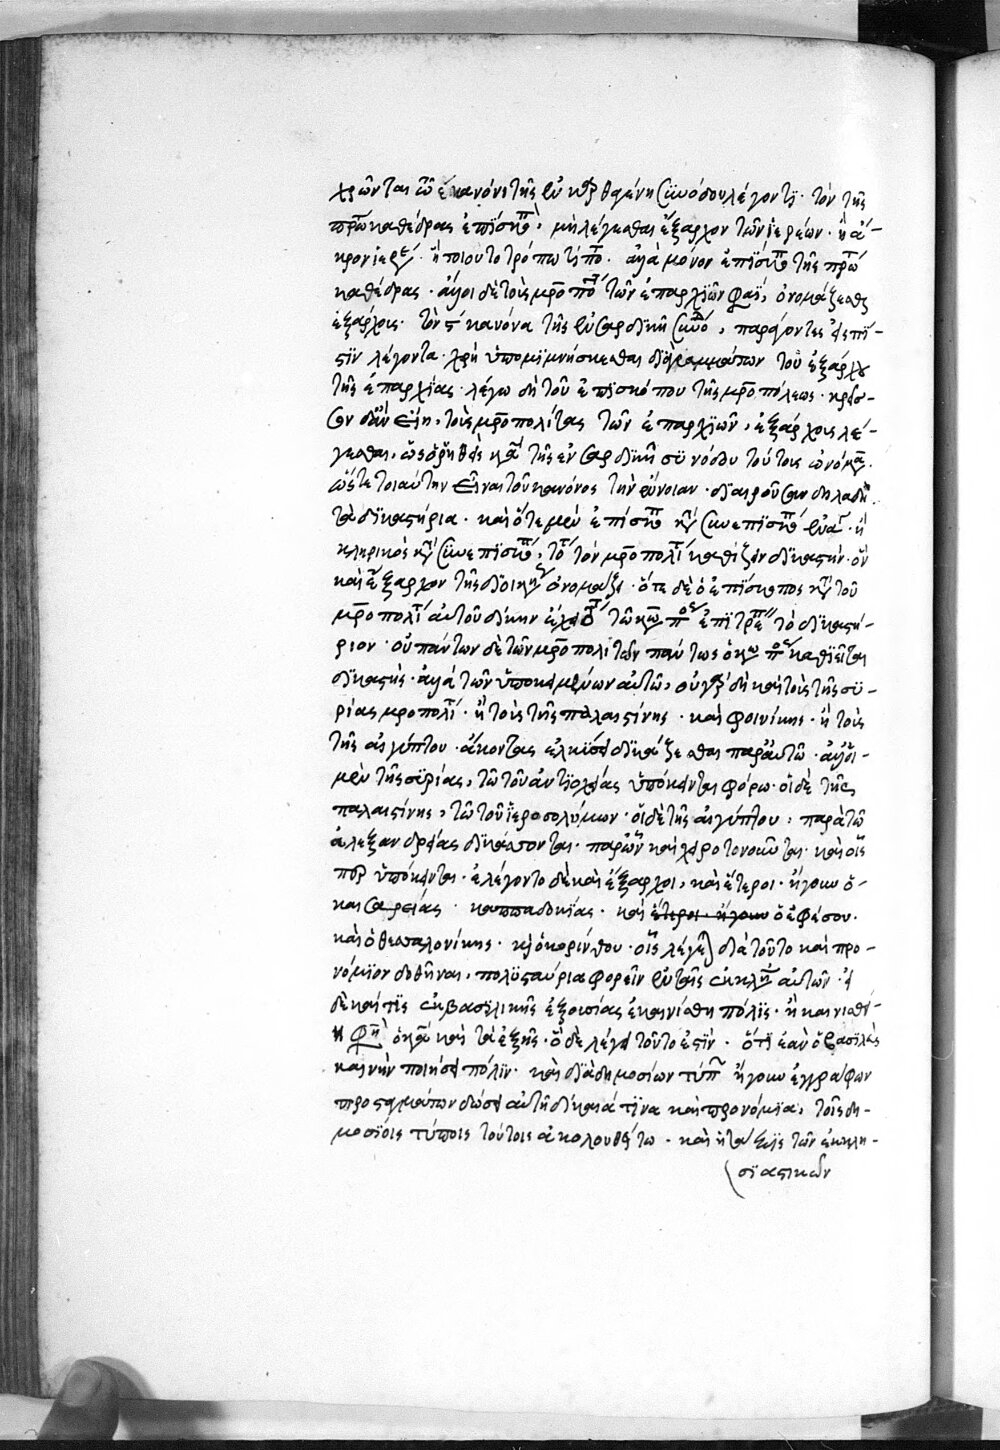 χρῶνται τῶ ἐκανόνι τῆς ἐν καρθαγένη συνόδου λέγοντϊ· τὸν τῆς
πρώ καθέδρας ἐπίσκοπ, μὴ λέγεσθαι ἔξαρχον τῶν ἱερέων· ἢ ἄ-
κρον ἱερέ· ἢ τοιουτοτρόπω τί πο· ἀλλὰ μόνον ἐπίσκοπ τῆς πρώ
καθέδρας· ἄλλοι δὲ τοὺς μροπο τῶν ἐπαρχϊῶν φασϊ, ὀνομάζεσθαι
ἐξάρχους· τὸν ϛ κανόνα τῆς ἐν σαρδϊκῆ συνό, παράγοντες ἐπί-
σϊν λέγοντα· χρὴ ὑπομϊμνήσκεσθαι δϊὰ γραμμάτων τοῦ ἐξάρχου
τῆς ἐπαρχίας· λέγω δὴ τοῦ ἐπισκόπου τῆς μροπόλεως· κρεῖσ-
σον δ' ἂν εἴη, τοὺς μροπολίτας τῶν ἐπαρχϊῶν, ἐξάρχους λέ-
γεσθαι, ὡς ὁ ῥηθεὶς κα τῆς ἐν σαρδϊκῆ σϋνόδου τούτους ὠνόμα.
ὥστε τοιαύτην εἶναι τοῦ κανόνος τὴν ἔννοιαν· δϊαιροῦσαν δηλαδὴ
τὰ δϊκαστήρια· καὶ ὅτε μὲν ἐπίσκοπ κα συνεπϊσκόπ ἐνα· ἢ
κληρικὸς κα συνεπϊσκόπ, το τὸν μροπολί καθίζειν δϊκαστήν· ὃν
καὶ ἔξαρχον τῆς δϊοική ὀνομάζει· ὅτε δὲ ὁ ἐπίσκοπος κα τοῦ
μροπολί αὐτοῦ δίκην ἔχει τῶ κω π ἐπϊτρέ τὸ δϊκαστή-
ριον· οὐ πάντων δὲ τῶν μροπολιτῶν πάντως ὁ κω π καθϊεῖται
δϊκαστής· ἀλλὰ τῶν ὑποκειμένων αὐτῶ, οὐ γὰρ δὴ καὶ τοὺς τῆς σϋ-
ρίας μροπολί· ἢ τοὺς τῆς παλαιστίνης· καὶ φοινίκης· ἢ τοὺς
τῆς αἰγύπτου· ἄκοντας ἑλκύσει δϊκάζεσθαι παρ' αὐτῶ· ἀλλ' οἱ
μὲν τῆς σϋρίας, τῶ τοῦ ἀντϊοχείας ὑπόκεινται φόρω· οἱ δὲ τῆς
παλαιστίνης, τῶ τοῦ ἱεροσολύμων· οἱ δὲ τῆς αἰγύπτου, παρὰ τῶ
ἀλεξανδρείας δϊκάσονται· παρ' ὧν καὶ χειροτονοῦνται· καὶ οἷς
περ ὑπόκεινται· ἐλέγοντο δὲ καὶ ἔξαρχοι, καὶ ἕτεροι· ἤγουν ὁ-
καισαρείας· καππαδοκίας· καὶ ἕτεροι· ἤγουν ὁ ἐφέσου·
καὶ ὁ θεσσαλονίκης· κ ὁ κορίνθου· οἷς λέγε διὰ τοῦτο καὶ προ-
νόμϊον δοθῆναι, πολϋσταύρια φορεῖν ἐν ταῖς ἐκκλη αὐτῶν· εἰ
δὲ καί τϊς ἐκ βασιλικῆς ἐξουσίας ἐκαινίσθη πόλϊς· ἢ καινισθεί-
η φη ὁ κα καὶ τὰ ἑξῆς· ὃ δὲ λέγει τοῦτο ἐστϊν· ὅτϊ ἐὰν ὁ βασϊλεὺς
καινὴν ποιήσει πόλϊν· καὶ δϊὰ δημοσίων τύπ ἤγουν ἐγγράφων
προσταγμάτων δώσει αὐτῆ δίκαιά τϊνα καὶ προνόμϊα, τοῖς δη-
μοσϊοις τύποις τούτοις ἀκολουθείτω· καὶ ἡ τάξϊς τῶν ἐκκλη-
σϊαστικῶν